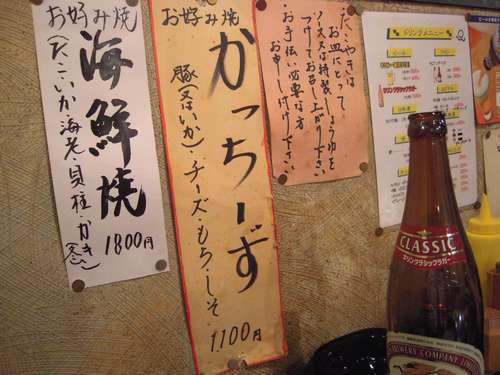 お好み焼
海鮮焼
(たこ・いか・海老・貝柱・かき
1800円
お好み焼
かっちーず
豚(又はいか)チーズ・もち・しそ
1100円
たこやきは
お皿にとって、
ソース又は特製しょうゆを
つけてお召し上がり下さい
お手伝い必要な方
お申し付け下さい
ドリンクメニュー
CLASSIC
キリンクラシックラガー
BREWERY COMPANY, LIMITED